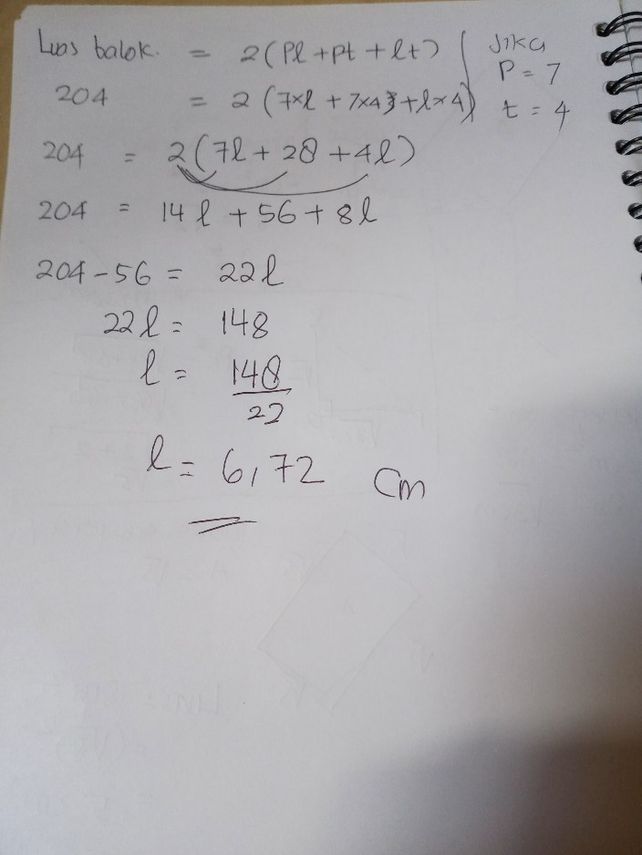 Luas balok. = 2(Pl + pt + lt) Jika
P = 7
204 = 2 (7×l + 7×4 + l×4) t = 4
204 = 2(7l + 28 + 4l)
204 = 14l + 56 + 8l
204 - 56 = 22l
22l = 148
l = 148
22
l = 6,72 Cm